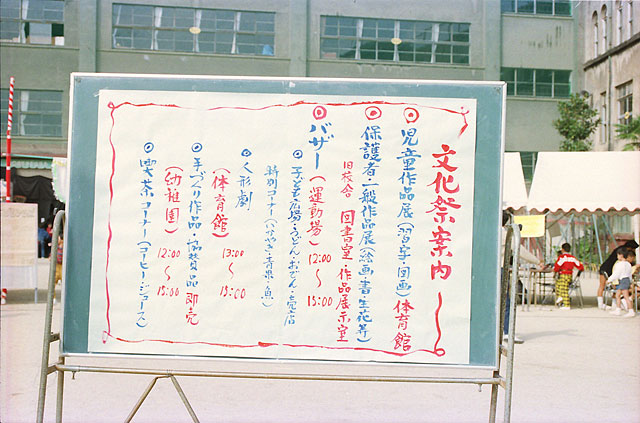 文化祭案内
◎児童作品展(習字・図画)体育館
◎保護者・一般作品展(絵画・書・生花等)
旧校舎 図書室・作品展示室
◎バザー(運動場)12:00〜15:00
◎子ども広場・うどん・おでん・売店
特別コーナー(八百屋・青果・魚)
◎人形劇
(体育館)13:00〜15:00
◎手づくり作品・協賛品即売
(幼稚園)12:00〜15:00
◎喫茶コーナー(コーヒー・ジュース)